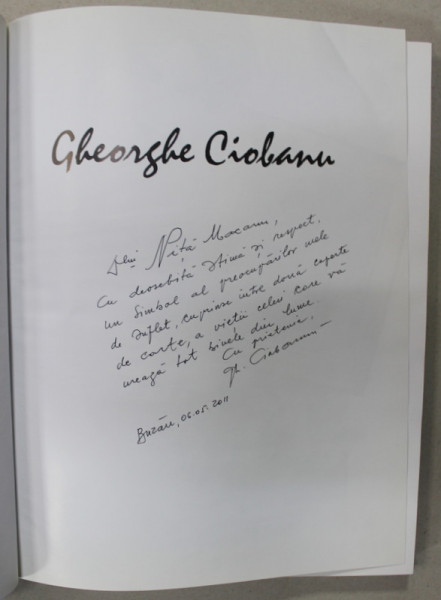 Gheorghe Ciobanu
Dlui Niță Macarm,
Cu deosebită stimă și respect,
un simbol al preocupărilor mele
de suflet, cuprinse între două coperte
de carte, a vieții celui care vă
urează tot binele din lume.
Cu prietenie,
Gh. Ciobanu
Buzău, 05.05.2011